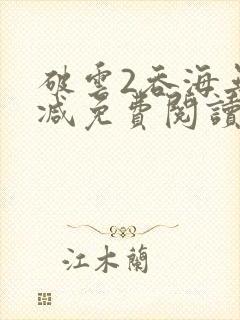 破雲2吞海無
減免費閱讀
江木蘭